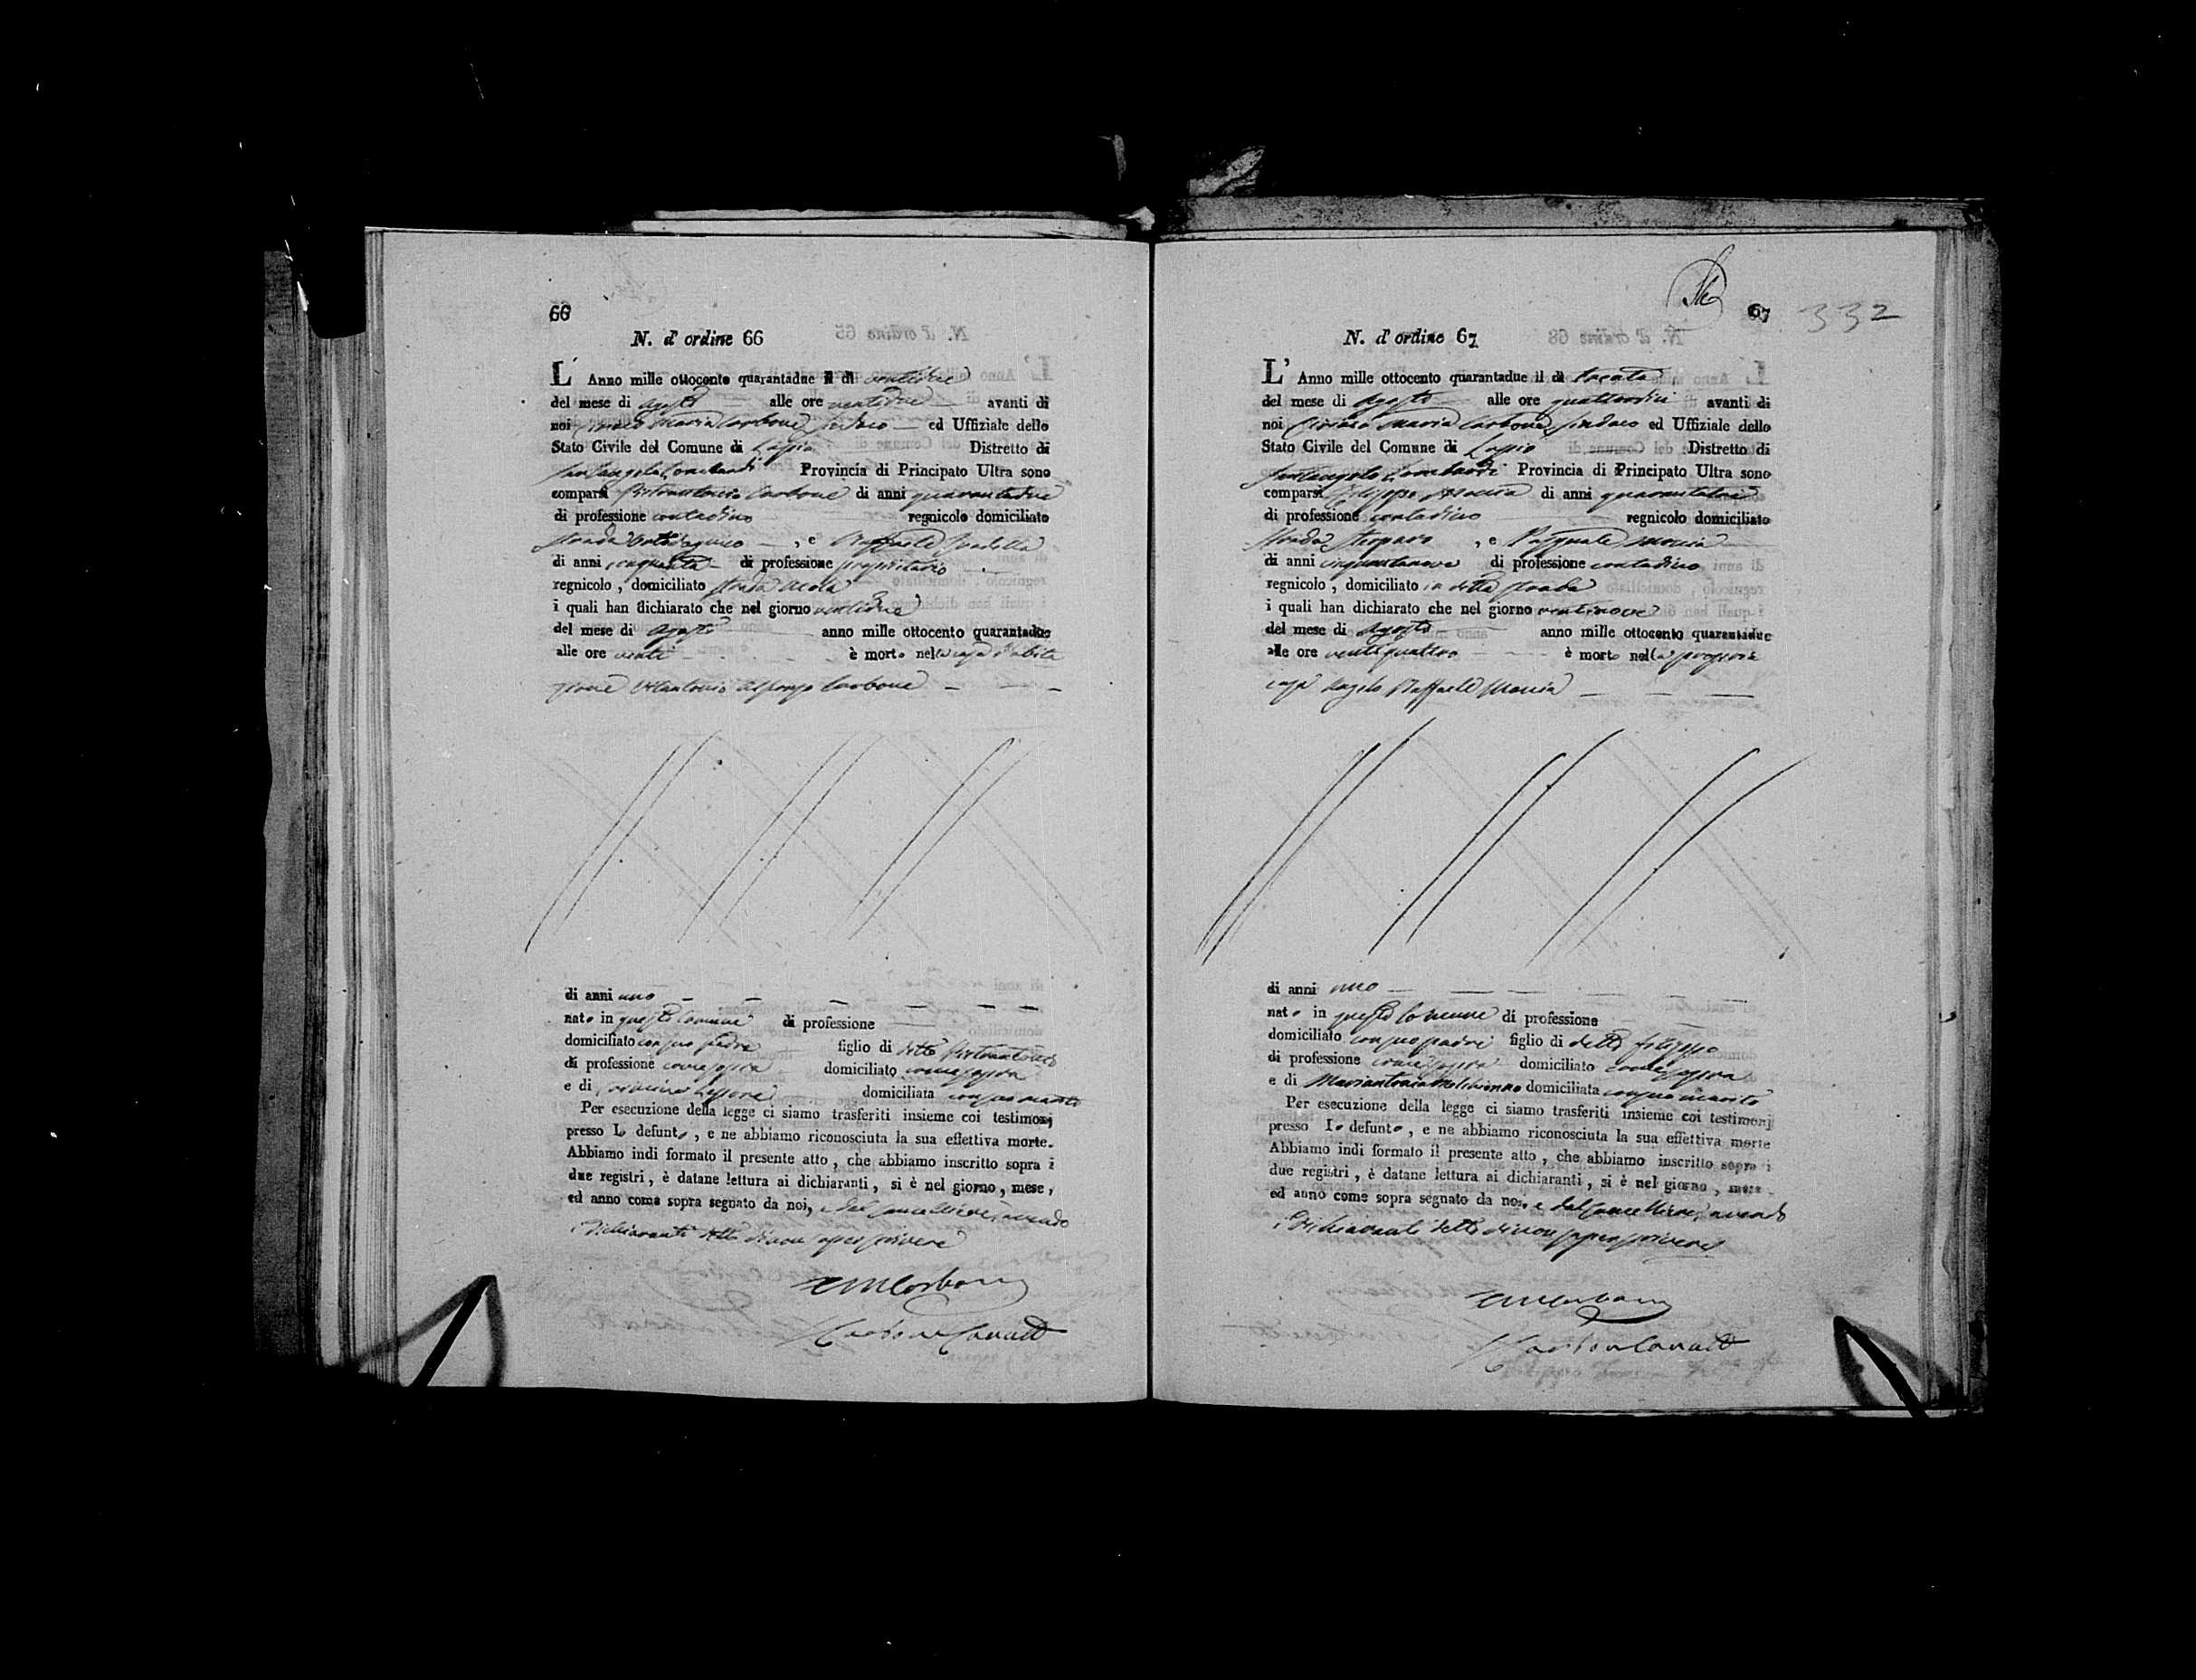 66
N. d'ordine 66
L' Anno mille ottocento quarantadue il dì ventidue
del mese di Agosto alle ore ventidue avanti di
noi Ciriaco Maria Carbone Sindaco ed Uffiziale dello
Stato Civile del Comune di Lapio Distretto di
Santangelo Lombardi Provincia di Principato Ultra sono
comparsi Carbone di anni quarantadue
di professione contadino regnicolo domiciliato
strada , e Raffaele
di anni cinquanta di professione proprietario
regnicolo, domiciliato strada
i quali han dichiarato che nel giorno ventidue
del mese di Agosto anno mille ottocento quarantadue
alle ore venti è morto nella casa d'abita
zione Vitantonio Alfonso Carbone
di anni uno
nato in questo Comune di professione
domiciliato con suo padre figlio di detto
di professione come sopra domiciliato come sopra
e di domiciliata con suo marito
Per esecuzione della legge ci siamo trasferiti insieme coi testimonj
presso Lo defunto, e ne abbiamo riconosciuta la sua effettiva morte.
Abbiamo indi formato il presente atto, che abbiamo inscritto sopra i
due registri, è datane lettura ai dichiaranti, si è nel giorno, mese,
ed anno come sopra segnato da noi, e dal Cancelliere, avendo
i Dichiaranti detto di non saper scrivere
CMCarbone
67
332
N. d'ordine 67
L' Anno mille ottocento quarantadue il dì trenta
del mese di Agosto alle ore quattordici avanti di
noi Ciriaco Maria Carbone Sindaco ed Uffiziale dello
Stato Civile del Comune di Lapio Distretto di
Santangelo Lombardi Provincia di Principato Ultra sono
comparsi Filippo di anni quarantatre
di professione contadino regnicolo domiciliato
strada , e Pasquale
di anni cinquantanove di professione contadino
regnicolo, domiciliato in detta strada
i quali han dichiarato che nel giorno ventinove
del mese di Agosto anno mille ottocento quarantadue
alle ore ventiquattro è morto nella propria
casa Angelo Raffaele
di anni uno
nato in questo Comune di professione
domiciliato con suo padre figlio di detto Filippo
di professione come sopra domiciliato come sopra
e di Mariantonia domiciliata con suo marito
Per esecuzione della legge ci siamo trasferiti insieme coi testimonj
presso Lo defunto, e ne abbiamo riconosciuta la sua effettiva morte
Abbiamo indi formato il presente atto, che abbiamo inscritto sopra i
due registri, è datane lettura ai dichiaranti, si è nel giorno, mese,
ed anno come sopra segnato da noi, e dal Cancelliere, avendo
i Dichiaranti detto di non saper scrivere
CMCarbone